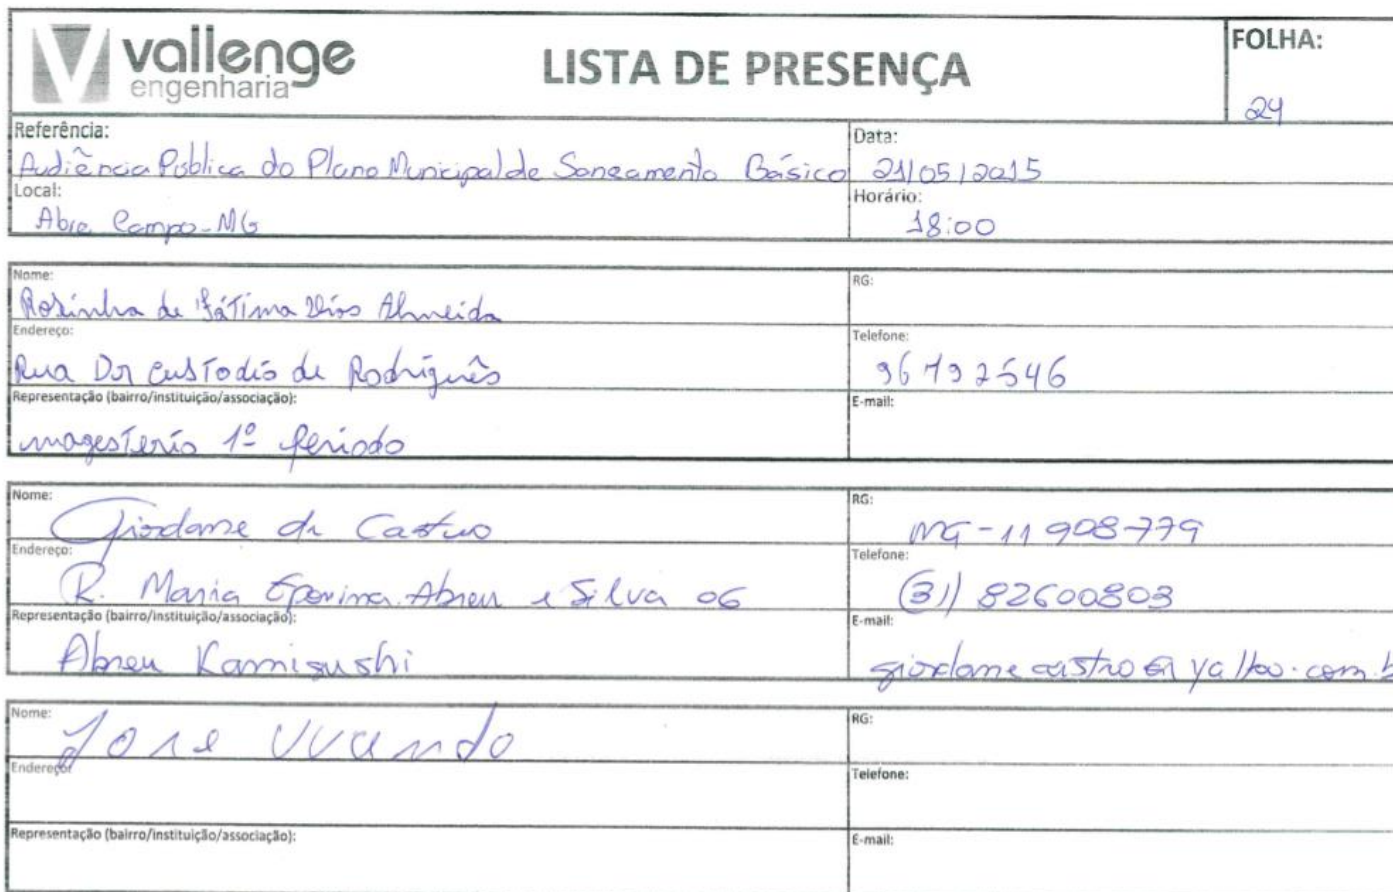 vallenge
engenharia
LISTA DE PRESENÇA
FOLHA:
24
Referência:
Audiência Pública do Plano Municipal de Saneamento Básico
Data:
21/05/2015
Local:
Abre Campo-MG
Horário:
18:00
Nome:
Rosinha de Fátima Almeida
RG:
Endereço:
Rua Dr custodio de Rodriguês
Telefone:
96792546
Representação (bairro/instituição/associação):
magesterio 1º periodo
E-mail:
Nome:
Giordane de Castro
RG:
MG-11 908-779
Endereço:
R. Maria Eponina Abreu e Silva 06
Telefone:
(31) 82600803
Representação (bairro/instituição/associação):
Abreu Kamisushi
E-mail:
giordane castro @ yahoo.com.b
Nome:
Jose
RG:
Endereço:
Telefone:
Representação (bairro/instituição/associação):
E-mail: